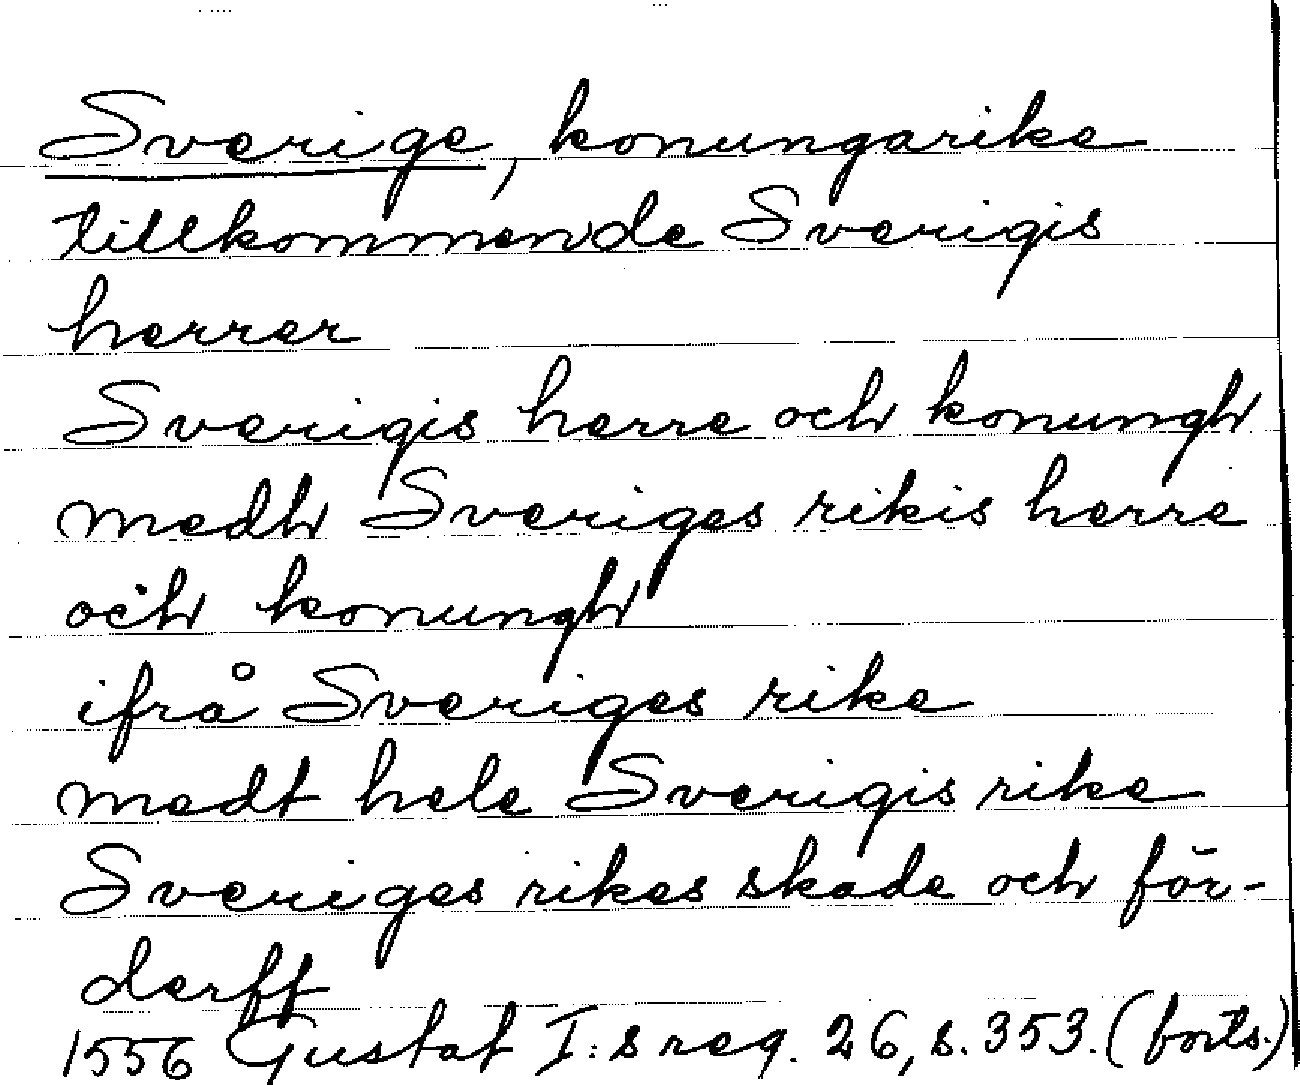 Sverige, konungarike
tillkommende Sverigis
herrer
Sverigis herre och konungh
medh Sveriges rikis herre
och konungh
ifrå Sveriges rike
medt hele Sverigis rike
Sveriges rikes skade och för-
derff
1556 Gustaf I:s reg. 26, s. 353. (forts.)